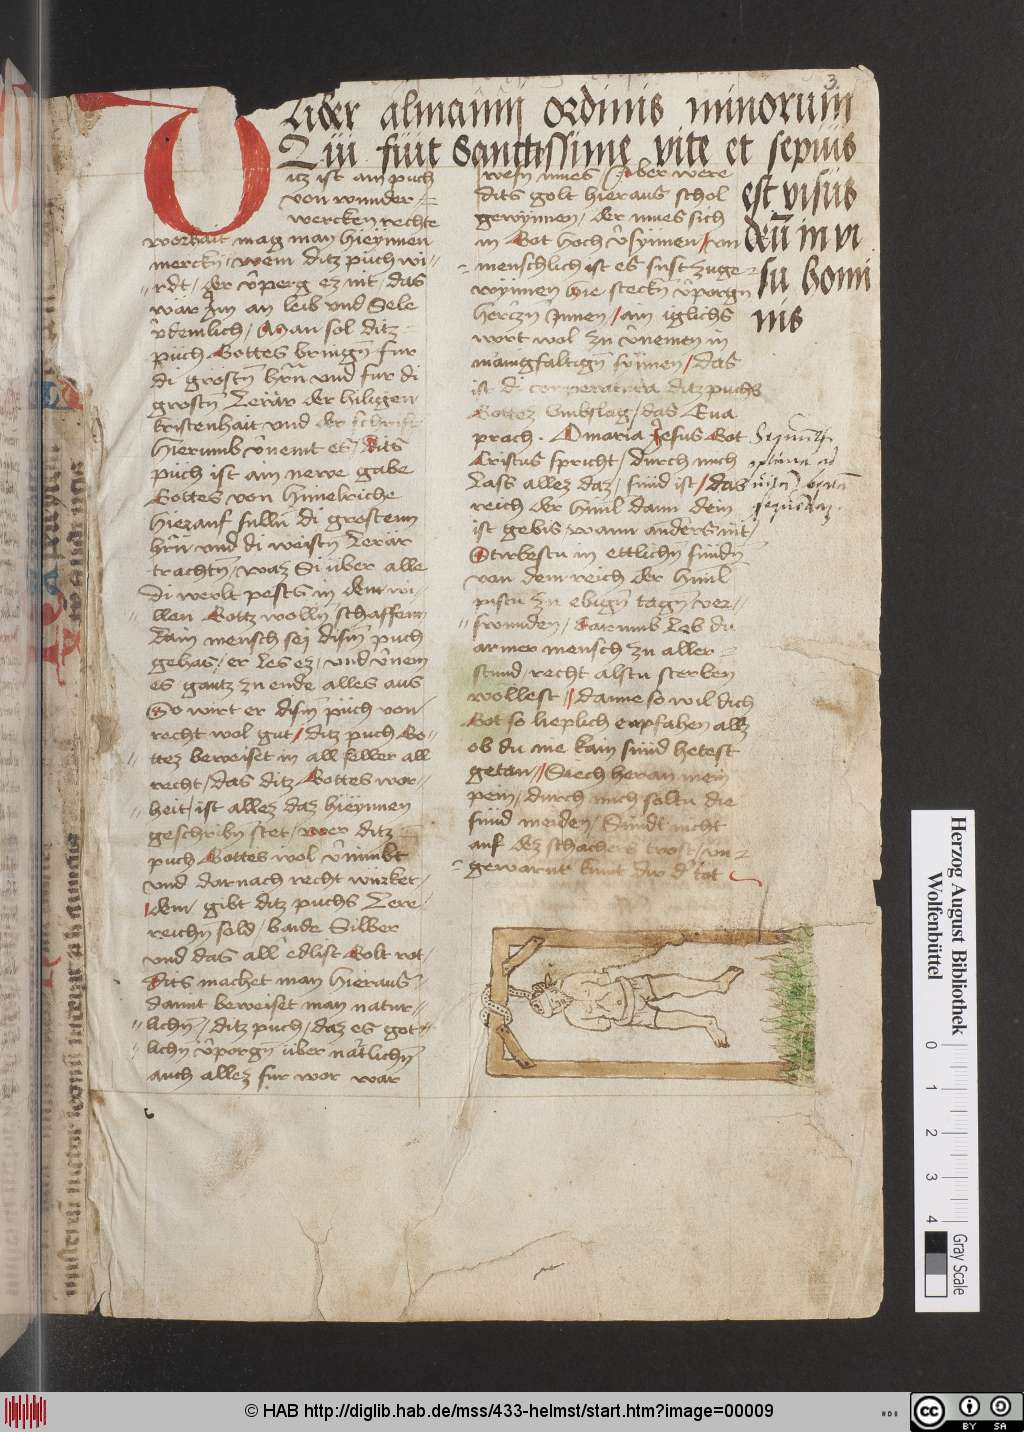 3
Liber almanni ordinis minorum
Qui fuit Sanctissime vite et sepius
est visus
deū in vi
su homi
nis
itz ist ain puch
von wunder
wercken rechte
worhait mag man hieÿnnen
merckn̄ / wem ditz puch wi
rdt / der v̂perg ez nit / das
wär Im an leib vnd Sele
Man sol ditz
puch Gottes bringn̄ fur
di grostn̄ hr̄n vnd fur di
grostn̄ Lerär der hiligen
kristenhait vnd der schrift
Hierumb v̂nemt es / dits
puch ist ain newe gabe
Gottes von himelriche
hiezauf sulln̄ di grosten
hr̄n vnd di weistn̄ Lerär
trachtn̄ / waz Si über alle
di werlt pestes in dem wi
llen Gottz wolln̄ schaffenn
kain mensch sej disem puch
gehas / er les ez / vnd v̂nem
es gantz zu ende alles aus
So wirt er disem puch von
recht wol gut / ditz puch Go
ttez beweiset in all seller all
recht / das ditz Gottes wor
heit / ist allez daz hieÿnnen
geschribn̄ stet / wer ditz
puch Gottes wol v̂nimbt
vnd darnach recht würket
dem / gibt ditz puchs Lere
reichn̄ sold / baide Silber
vnd das all edlist Golt rot
Dits machet man hieraus
damit beweiset man natur
lichn̄ / ditz puch / daz es got
lichn̄ v̂porgn̄ über nätlichn̄
auch allez fur wor war
wesn̄ Silber were
dits golt hieraus schol
gewÿnnen / der mues sich
in Got hoch v̂sÿnnen / vn
menschlich ist es sust zuge
wÿnnen hie steckn̄ v̂porgn̄
herczn̄ Innen / ain iglichs
wort wol zu v̂nemen in
manigfaltign̄ sÿnnen / das
ist di ditz puchs
Gottez vmbslag / das Eua
prach . O maria Jesus Got
Cristus spricht / durch mich
Lass allez daz / sünd ist / das
reich der himl dann dein
ist gebis wann anders nit
Stirbestu in ettlichn̄ sündn̄
von dem reich der himl
pistu zu ebign̄ tagn̄ ver
swunden / Darumb leb du
armer mensch zu aller
stund recht alstu sterben
wöllest / danne so wil dich
Got so lieplich enpfahen allz
ob du nie kain sünd hetest
getan / Siech heran mein
pein / durch mich soltu die
sünd meiden / Sündt nicht
auf dez schachers trost / vn
gewarnt kumt dir d' tot
Herzog August Bibliothek
Wolfenbüttel
0 1 2 3 4
Gray Scale
© HAB http://diglib.hab.de/mss/433-helmst/start.htm?image=00009
HAB
cc BY SA